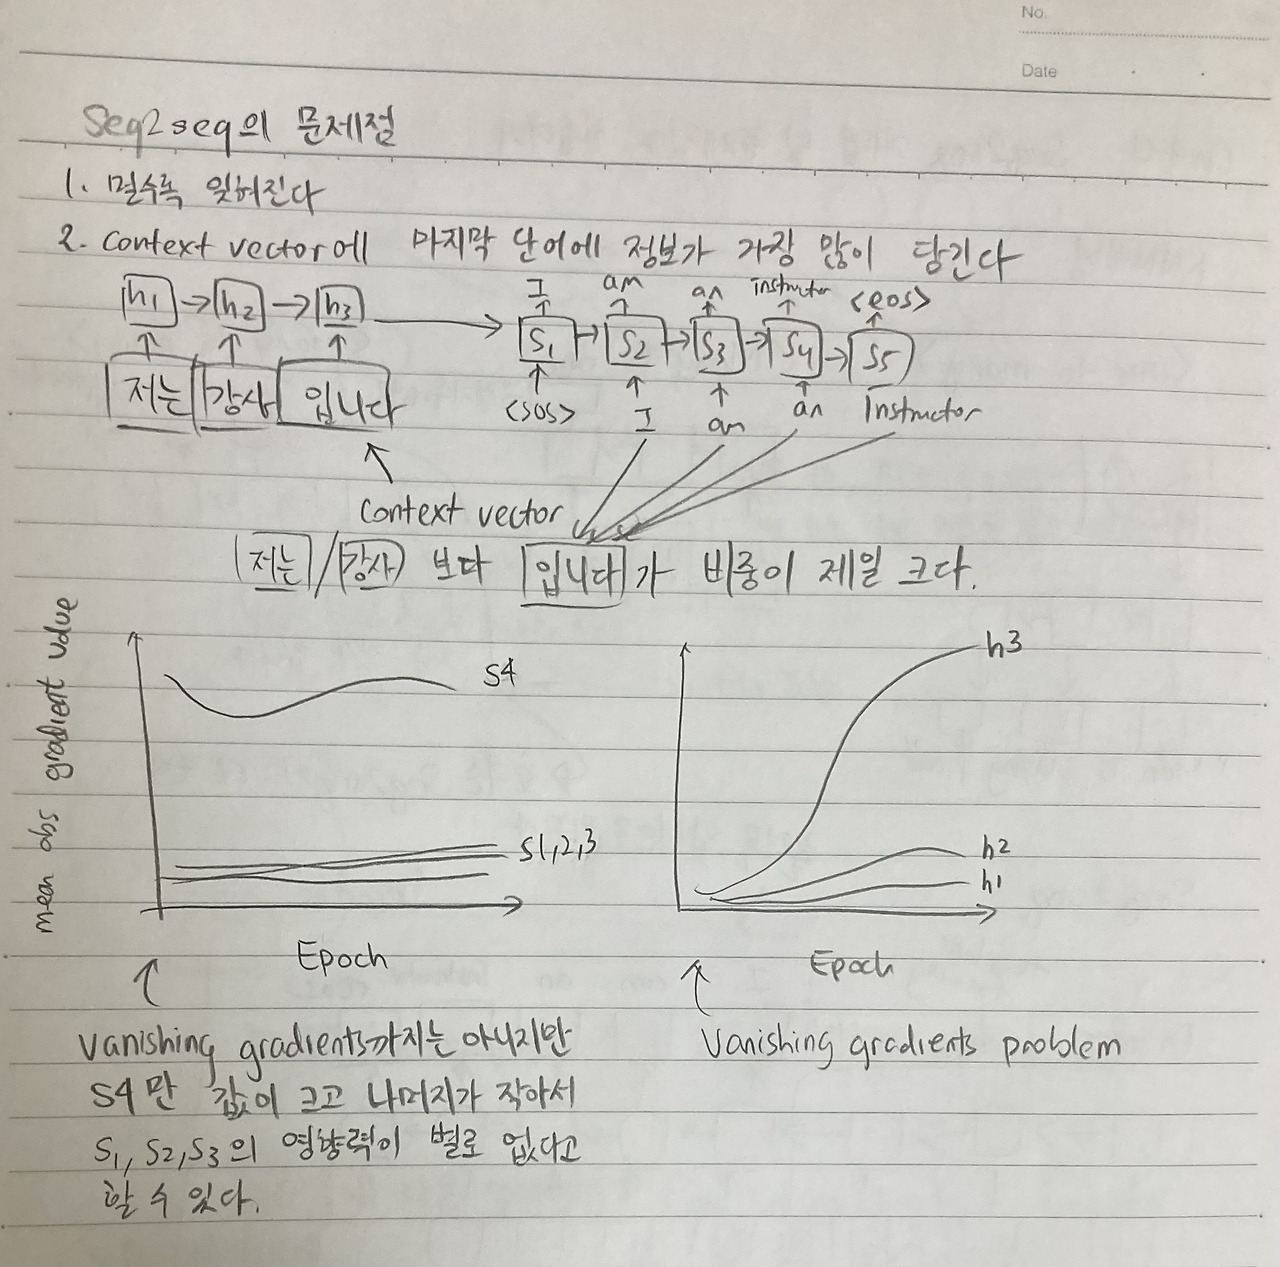 No.
Date
Seq2seq의 문제점
1. 멀수록 잊혀진다
2. Context vector에 마지막 단어에 정보가 가장 많이 담긴다
I am an instructor <eos>
h1 → h2 → h3 → S1 → S2 → S3 → S4 → S5
저는 강사 입니다
<sos> I am an Instructor
Context vector
저는 / 강사 보다 입니다 가 비중이 제일 크다.
mean abs gradient value
S4
S1,2,3
Epoch
h3
h2
h1
Epoch
Vanishing gradients까지는 아니지만
S4만 값이 크고 나머지가 작아서
S1, S2, S3의 영향력이 별로 없다고
할 수 있다.
Vanishing gradients problem